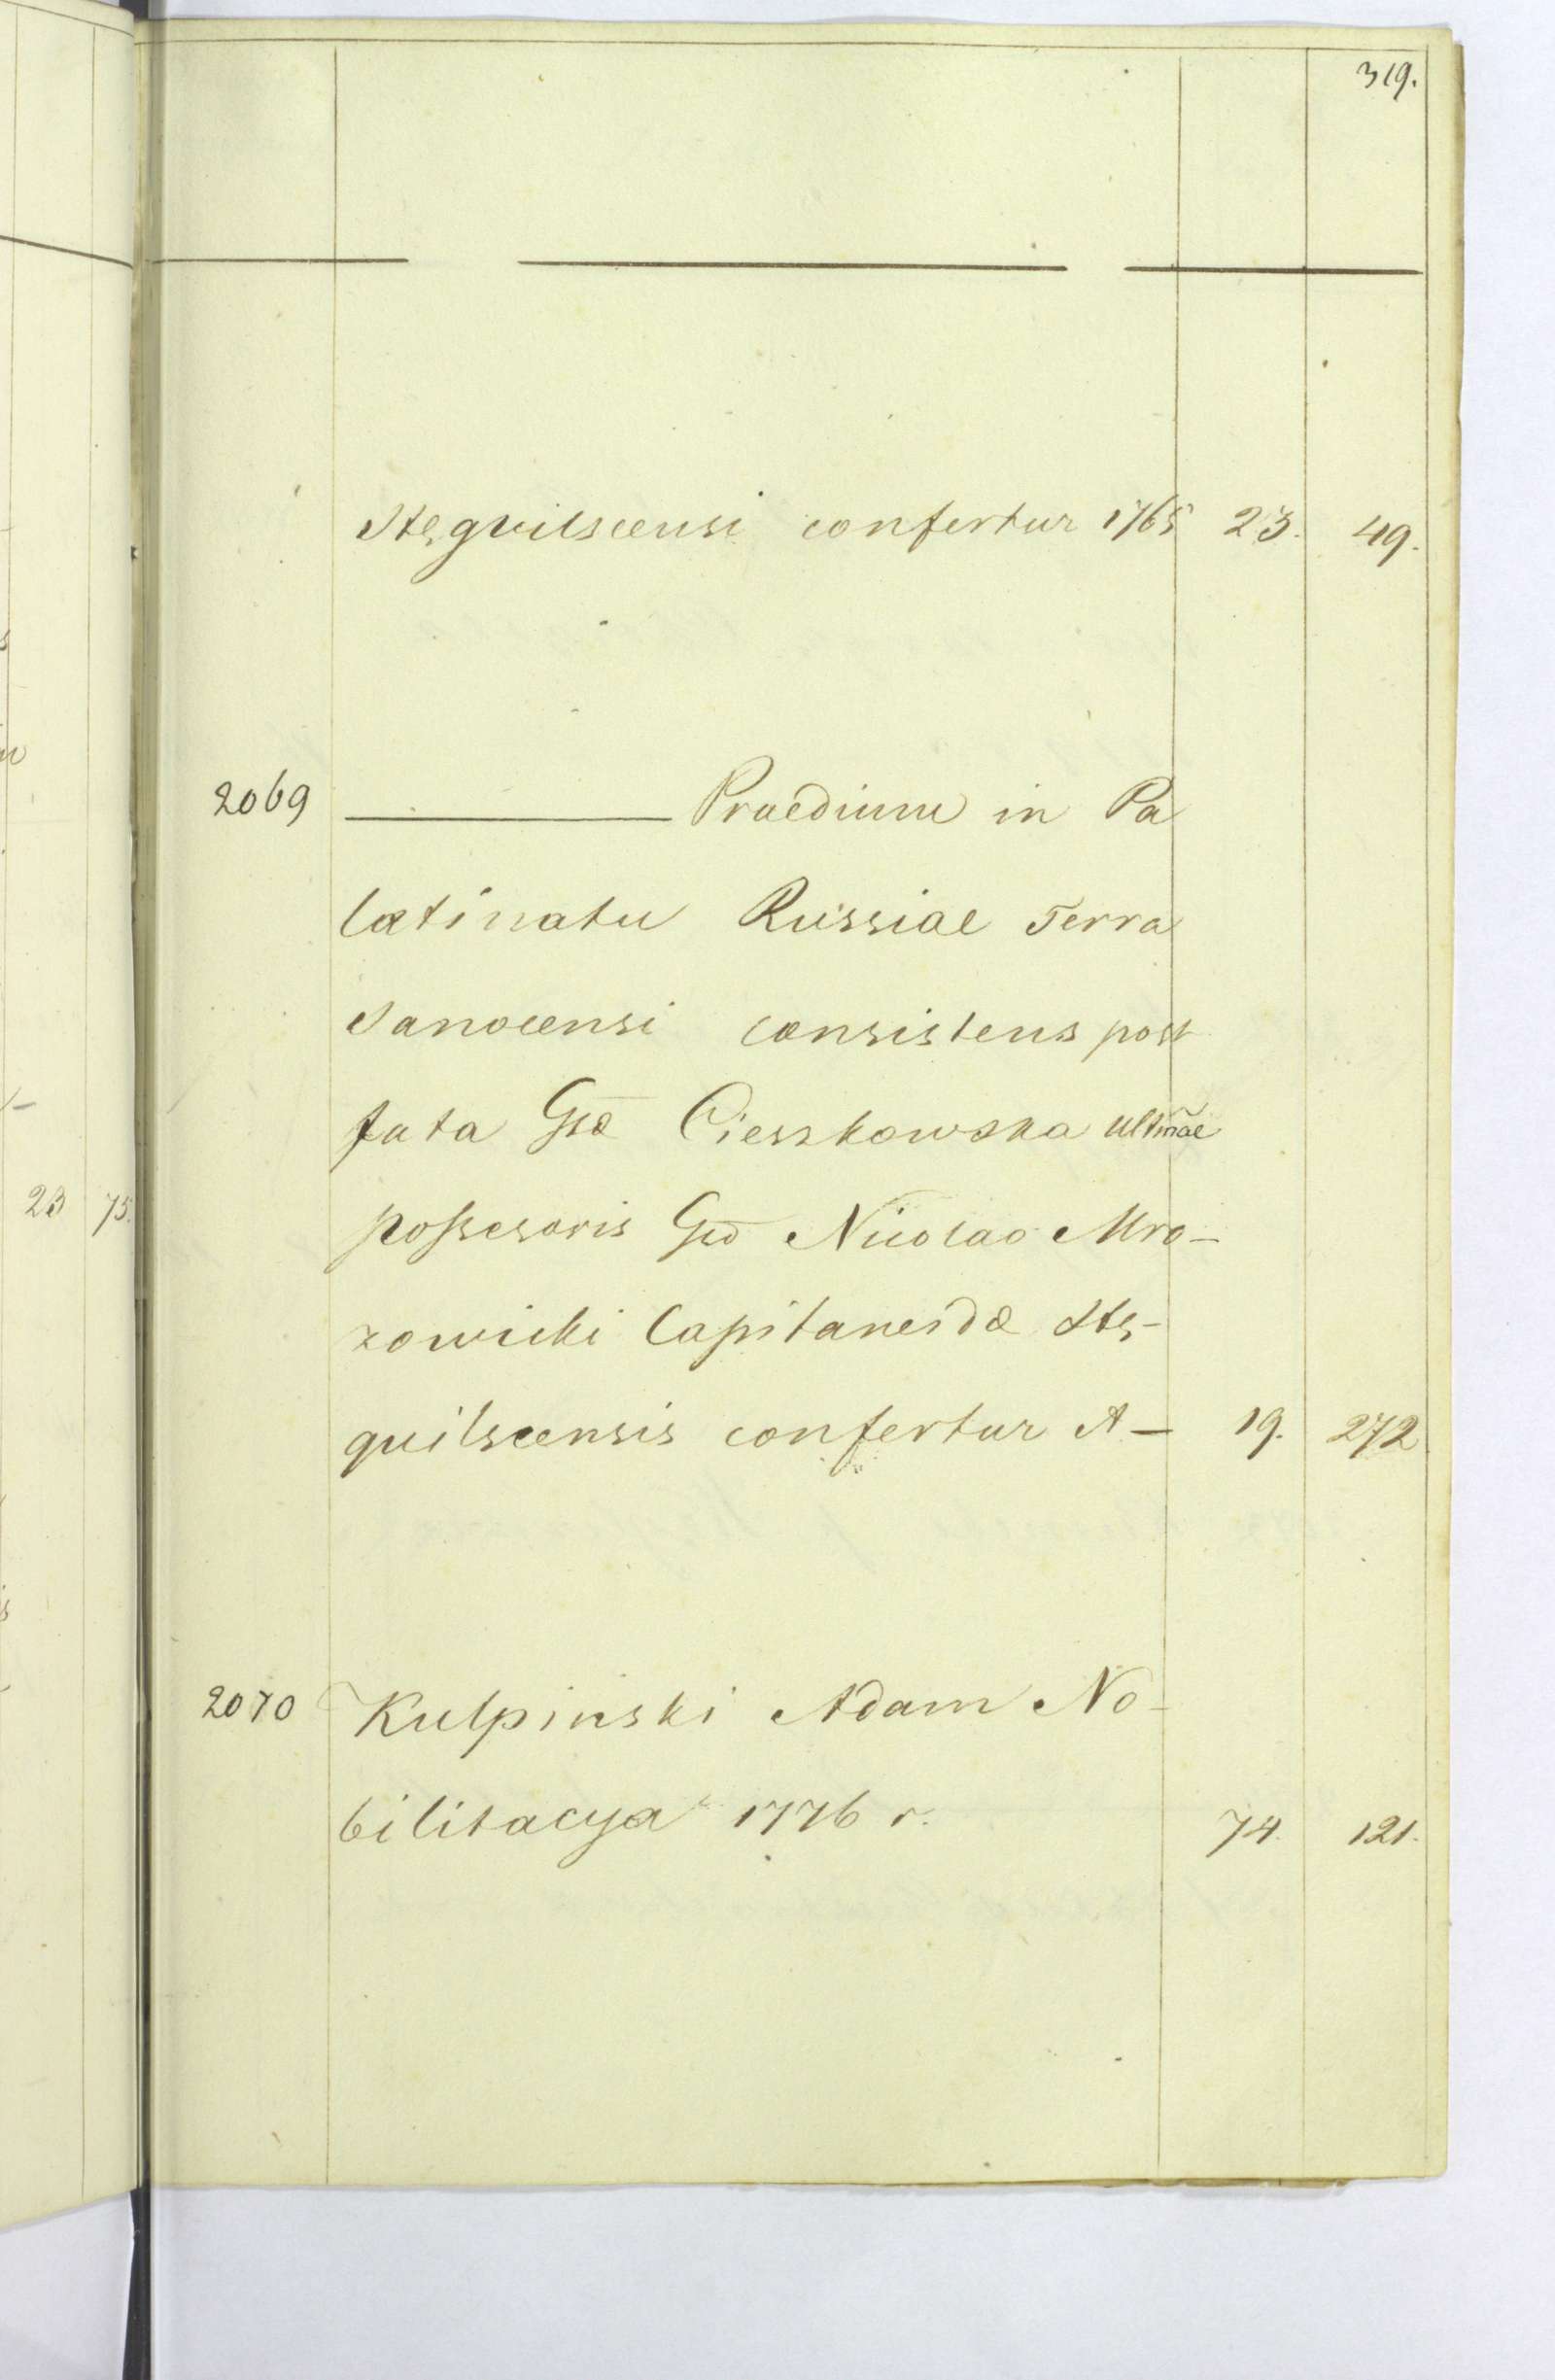 319.
Stęgvilscensi confertur 1765 23. 49.
2069 ——— Praedium in Pa
latinatu Russiae Terra
Sanocensi consistens post
fata Gsæ Cieszkowska ultmae
possesoris Gso Nicolao Mro-
zowicki Capitaneidæ Stę-
quilscensis confertur A— 19. 272
2070 Kulpinski Adam No-
bilitacya 1776 r. 74. 121.
23 75.